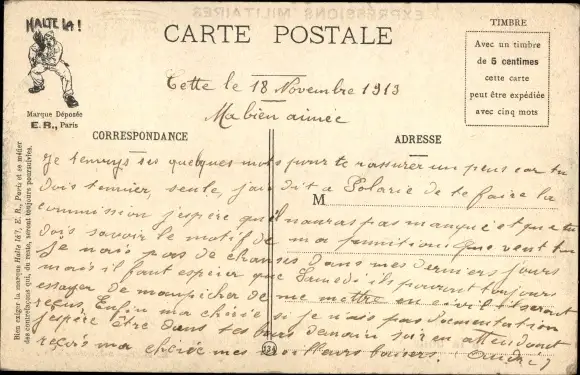 EXPRESSIONS MILITAIRES
HALTE LA !
Marque Déposée
E. R., Paris
CARTE POSTALE
TIMBRE
Avec un timbre
de 5 centimes
cette carte
peut être expédiée
avec cinq mots
Cette le 18 Novembre 1913
Ma bien aimée
CORRESPONDANCE
ADRESSE
M
Je t'envoys ses quelques mots pour te rassurer un peus car tu
dois t'ennuier, seule, j'ais dit a de te faire la
commission j'espère qu'il nauras pas manqué et que tu
dois savoir le motif de ma punition Que veut tu
Je nais pas de chanses dans mes derniers jours
mais il faut espérer que Samedi ils pourront toujours
essayer de m'empicher de me mettre en civil ils seront
reçus, Enfin ma chérie si je n'ais pas d'ementation
j'espère être dans tes bras demain soir en attendant
reçois ma chérie mes meilleurs baisers. (André)
134
Bien exiger la marque Halte là !, E. R., Paris et se méfier
des contrefaçons qui, du reste, seront toujours poursuivies.